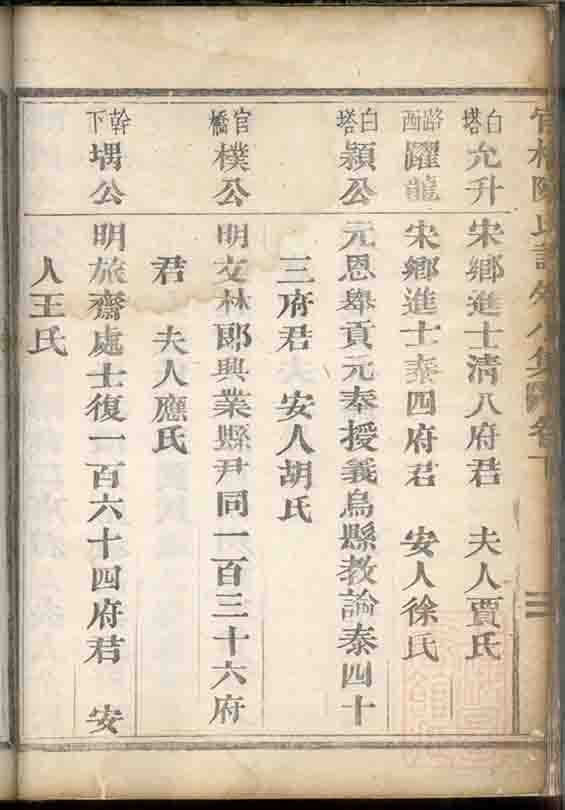 白塔 允升 宋鄉進士清八府君 夫人賈氏
路西 躍龍 宋鄉進士泰四府君 安人徐氏
白塔 潁公 元恩舉貢元奉授義烏縣教諭泰四十
三府君 安人胡氏
官橋 樸公 明文林郎興業縣尹同一百三十六府
君 夫人應氏
幹下 堣公 明旅齋處士復一百六十四府君 安
人王氏